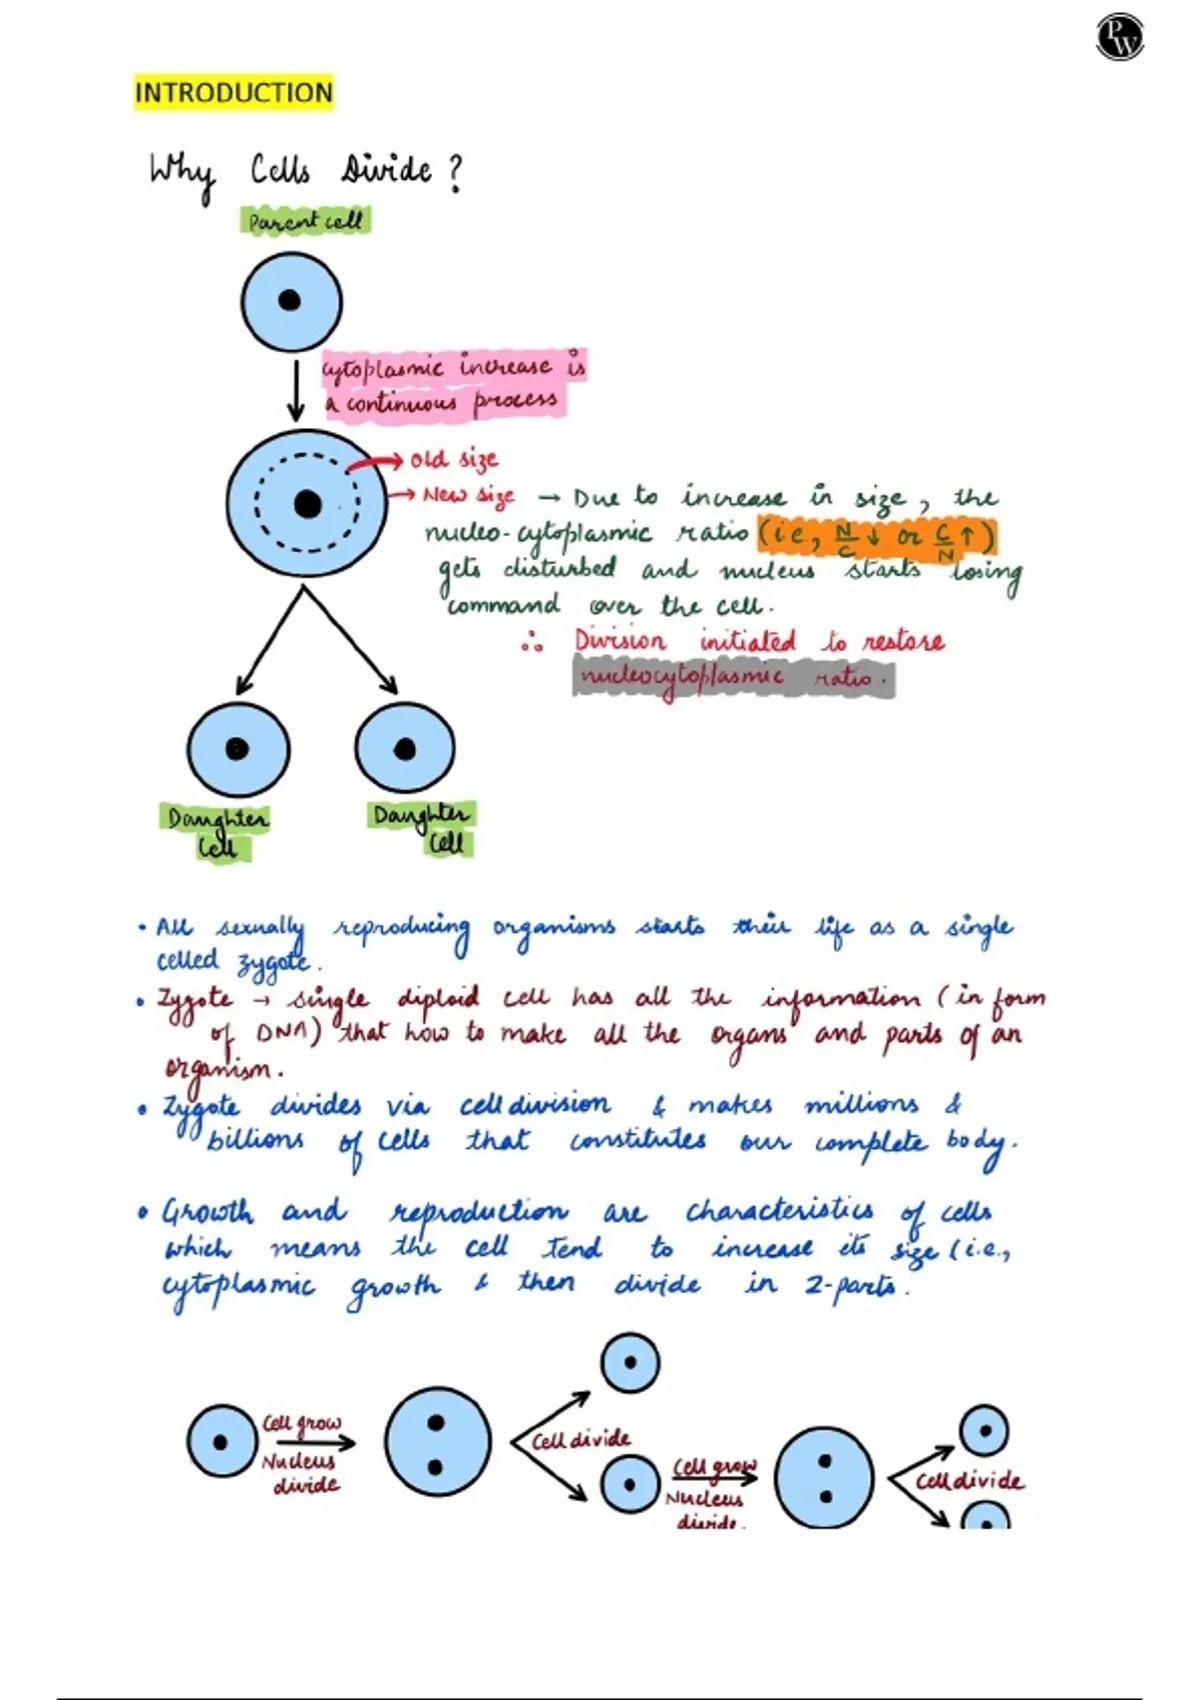 PW
INTRODUCTION
Why Cells Divide ?
Parent cell
cytoplasmic increase is
a continuous process
Old size
New size → Due to increase in size, the
nucleo-cytoplasmic ratio (i.e, N/C ↓ or C/N ↑)
gets disturbed and nucleus starts losing
command over the cell.
∴ Division initiated to restore
nucleocytoplasmic ratio.
Daughter Cell
Daughter Cell
• All sexually reproducing organisms starts their life as a single
celled zygote.
• Zygote → single diploid cell has all the information (in form
of DNA) that how to make all the organs and parts of an
organism.
• Zygote divides via cell division & makes millions &
billions of cells that constitutes our complete body.
• Growth and reproduction are characteristics of cells
which means the cell tend to increase its size (i.e.,
cytoplasmic growth & then divide in 2-parts.
Cell grow
Nucleus
divide
Cell divide
Cell grow
Nucleus
divide.
Cell divide